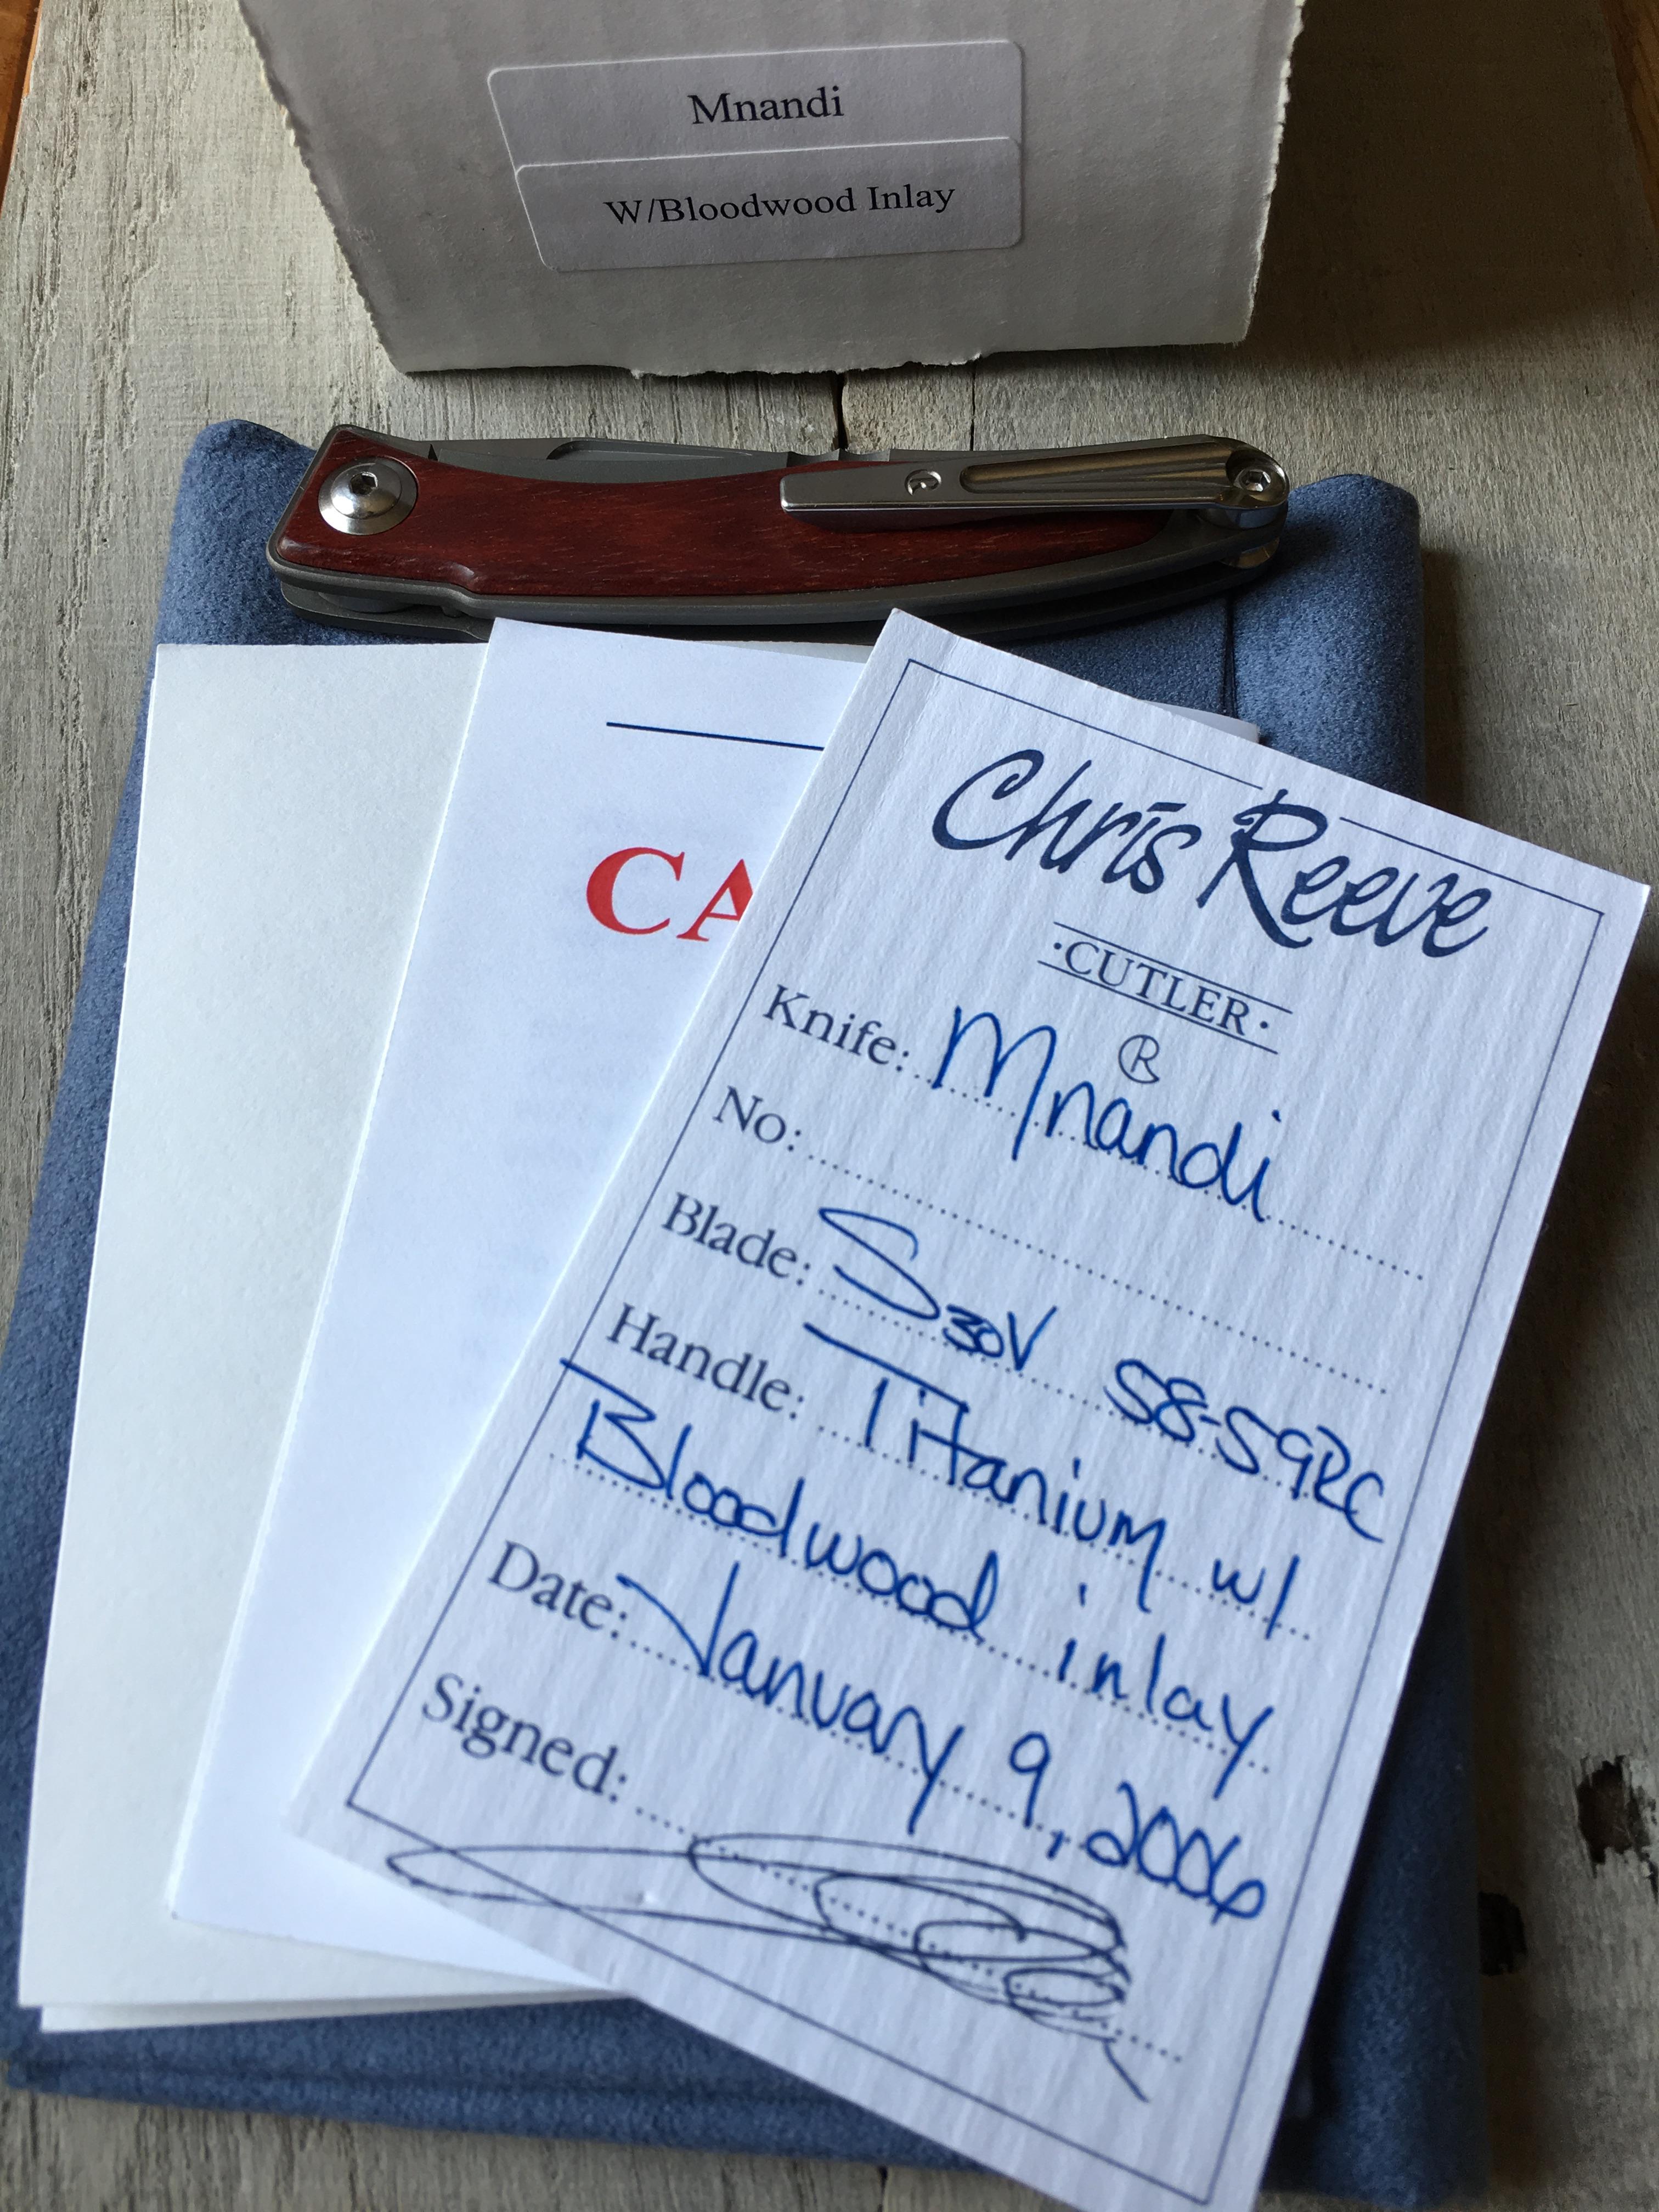 Mnandi
W/Bloodwood Inlay
CA
Chris Reeve
·CUTLER·
Knife: Mnandi
No:
Blade: S30V 58-59RC
Handle: Titanium w/
Bloodwood inlay
Date: January 9, 2006
Signed: